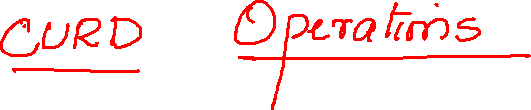 CURD Operations